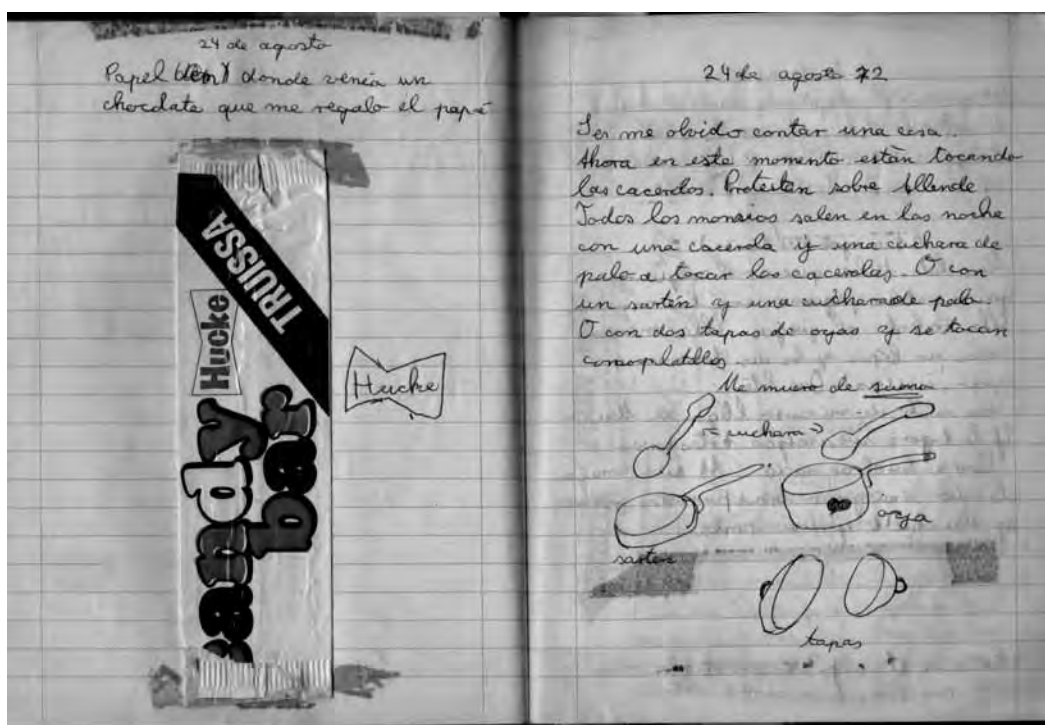 24 de agosto
Papel donde venía un
chocolate que me regalo el papá
TRUISSA
Hucke
candy
bar
Hucke
24 de agosto 72
Se me olvido contar una cosa.
Ahora en este momento están tocando
las cacerolas. Protestan sobre Allende.
Todos los momios salen en las noche
con una cacerola y una cuchara de
palo a tocar las cacerolas. O con
un sartén y una cuchara de palo.
O con dos tapas de oyas y se tocan
como platillos.
Me muero de sueño
cuchara
oya
sartén
tapas